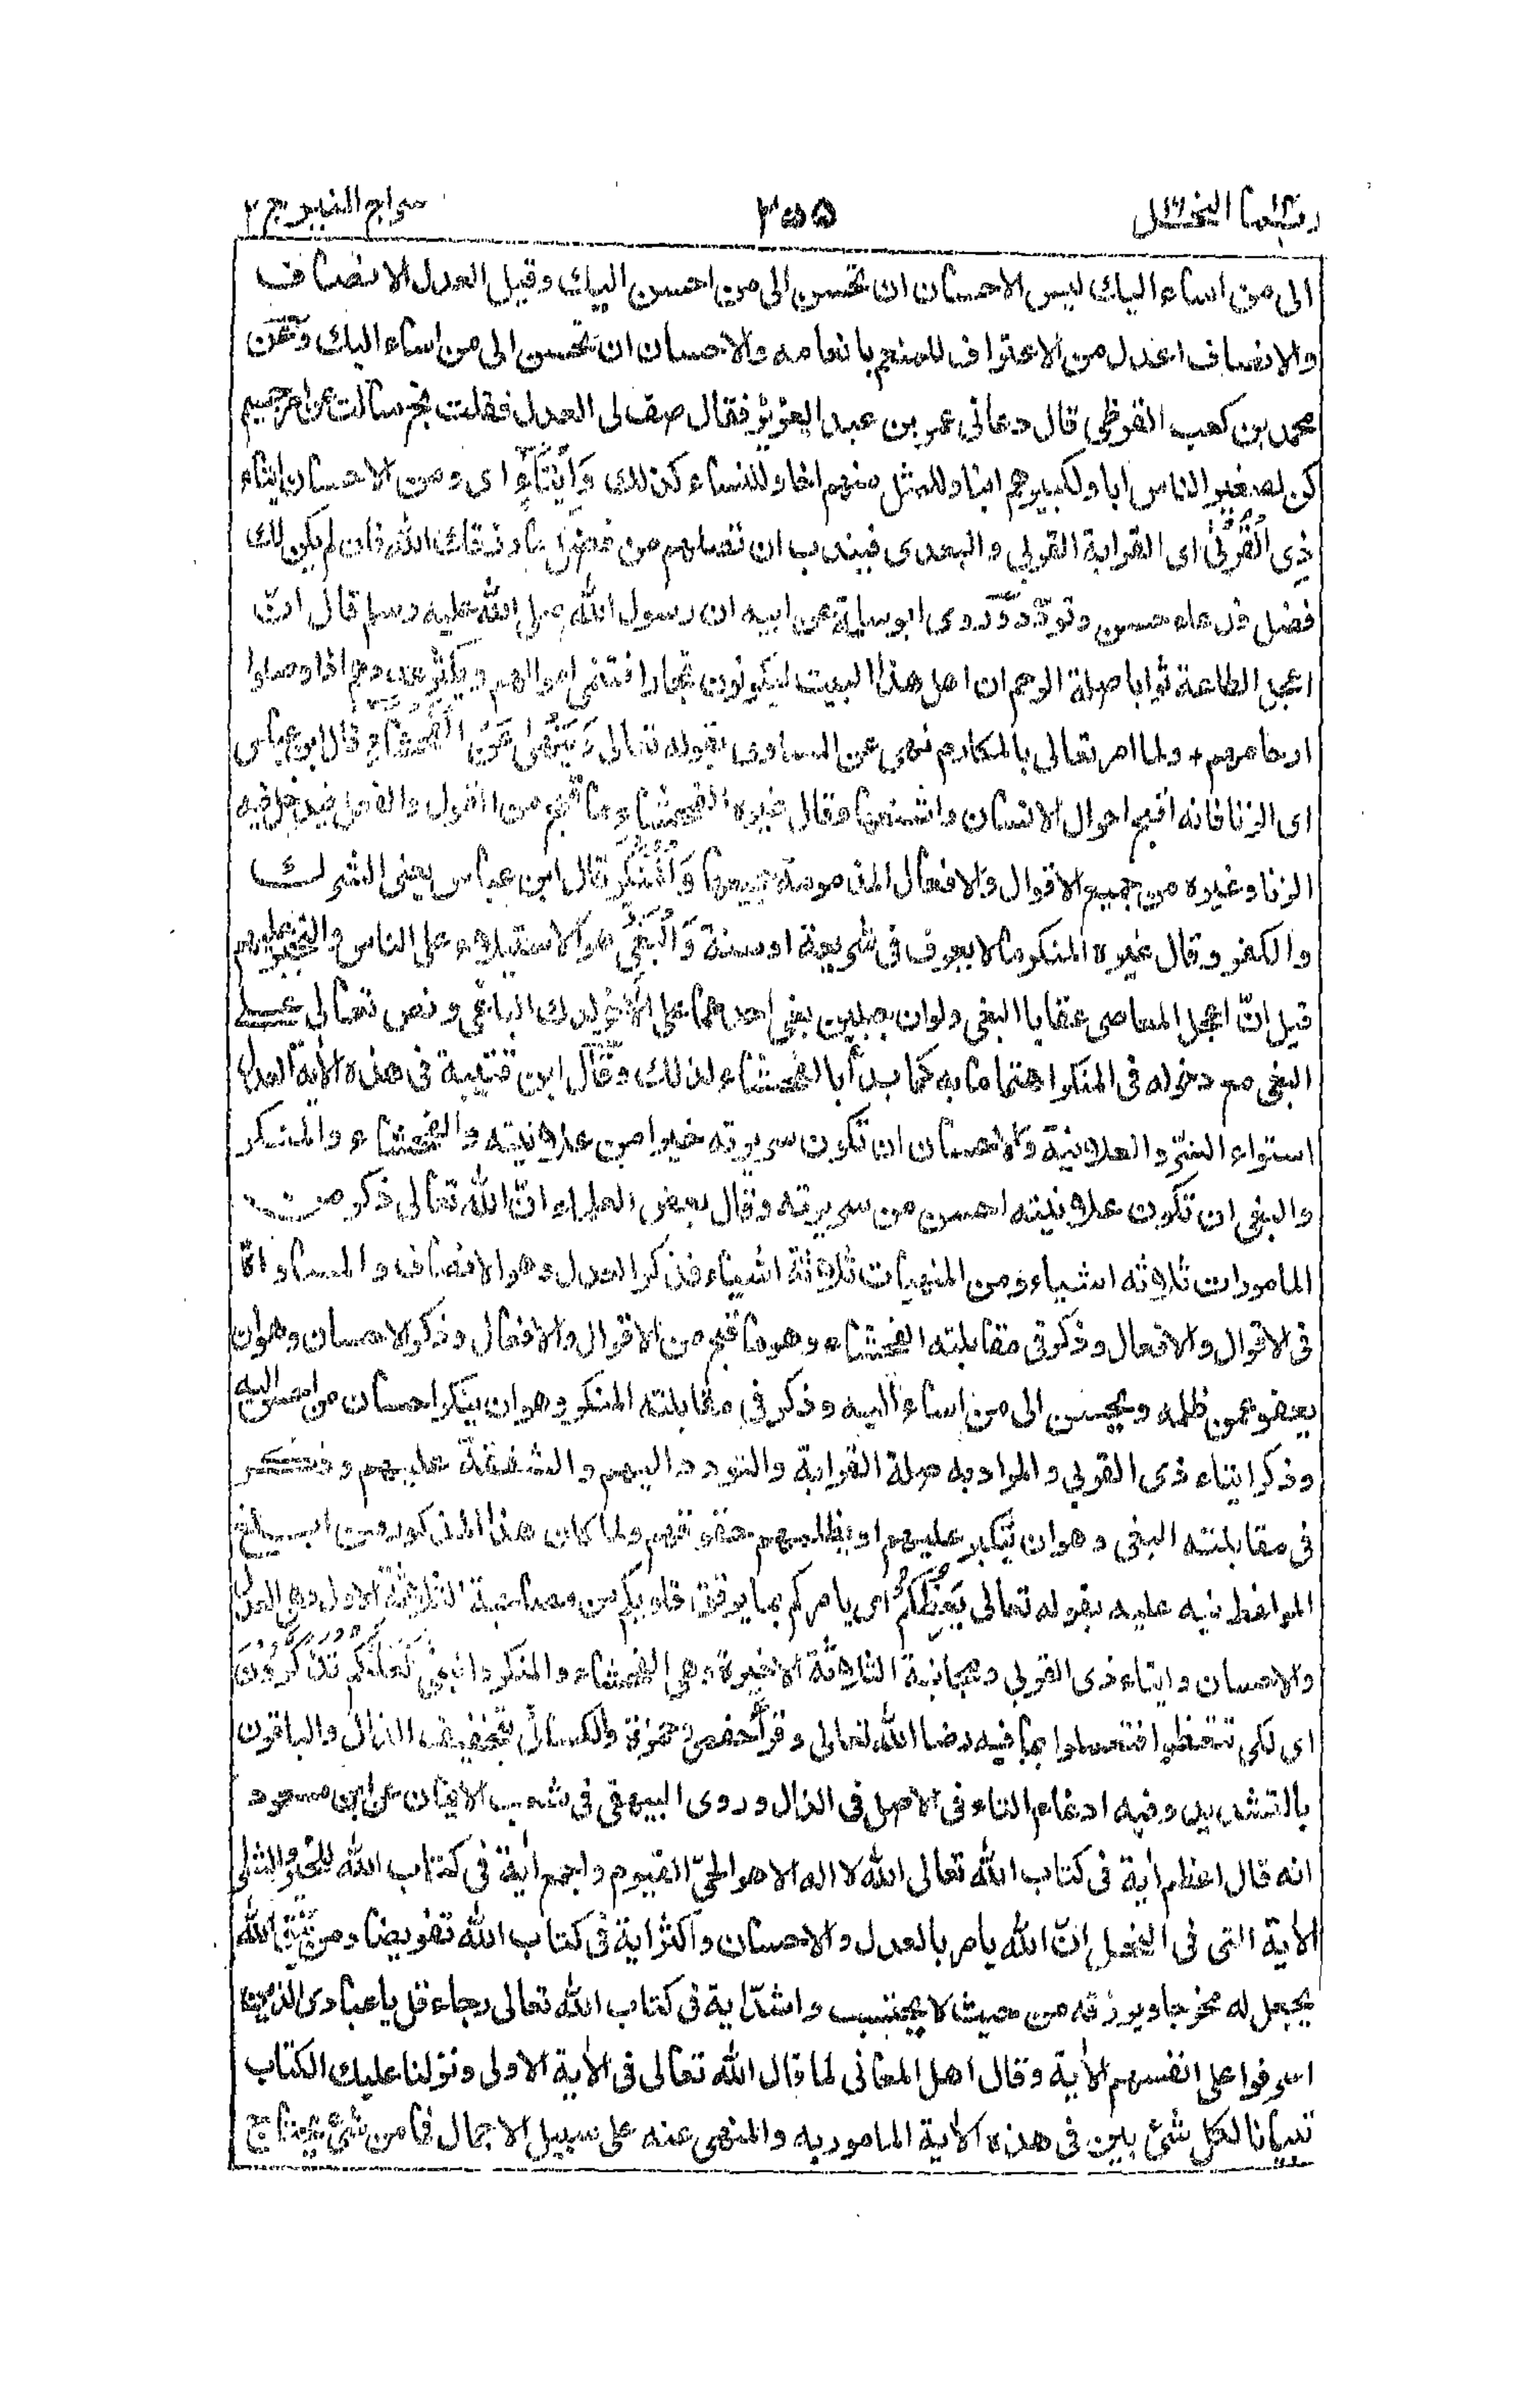 ربما١٤ النحل١٦ ٣٥٥ سراج المنير ج ٢
الى من اساء اليك ليس الاحسان ان تحسن الى من احسن اليك وقيل العدل الانصاف
والانصاف اعدل من الاعتراف للمنعم بانعامه والاحسان ان تحسن الى من اساء اليك وعن
محمد بن كعب القرظى قال دعانى عمر بن عبد العزيز فقال صف لى العدل فقلت بخ سالت عن امر جسيم
كن لصغير الناس ابا ولكبيرهم ابنا وللمثل منهم اخا وللنساء كذلك وَاِيْتَآءِ اى ومن الاحسان ايتاء
ذِى الْقُرْبٰى اى القرابة القربى والبعدى فيندب ان تصلهم من فضل ما رزقك الله فان لم يكن لك
فضل فدعاء حسن وتودّد وروى ابو سلمة عن ابيه ان رسول الله صلى الله عليه وسلم قال انّ
اعجل الطاعة ثوابا صلة الرحم ان اهل هذا البيت ليكونون فجارا فتنمى اموالهم ويكثر عددهم اذا وصلوا
ارحامهم + ولما امر تعالى بالمكارم نهى عن المساوى بقوله تعالى وَيَنْهٰى عَنِ الْفَحْشَآءِ قال ابن عباس
اى الزنا فانه اقبح احوال الانسان واشنعها وقال غيره الفحشاء ما قبح من القول والفعل فيدخل فيه
الزنا وغيره من جميع الاقوال والافعال المذمومة جميعها وَالْمُنْكَرِ قال ابن عباس يعنى الشرك
والكفر وقال غيره المنكر ما لا يعرف فى شريعة او سنة وَالْبَغْىِ هو الاستيلاء على الناس والتجبر عليهم
قيل انّ اعجل المعاصى عقابا البغى ولو ان جبلين بغى احدهما على الاخر لدك الباغى ونص تعالى على
البغى مع دخوله فى المنكر اهتماما به كما بدأ بالفحشاء لذلك وقال ابن قتيبة فى هذه الاية العدل
استواء السرّ والعلانية والاحسان ان تكون سريرته خيرا من علانيته والفحشاء والمنكر
والبغى ان تكون علانيته احسن من سريرته وقال بعض العلماء انّ الله تعالى ذكر من
المامورات ثلاثه اشياء ومن المنهيات ثلاثة اشياء فذكر العدل وهو الانصاف والمساواة
فى الاقوال والافعال وذكر فى مقابلته الفحشاء وهو ما قبح من الاقوال والافعال وذكر الاحسان وهو ان
يعفو عمن ظلمه ويحسن الى من اساء اليه وذكر فى مقابلته المنكر وهو ان ينكر احسان من احسن اليه
وذكر ايتاء ذى القربى والمراد به صلة القرابة والتودد اليهم والشفقة عليهم وذكر
فى مقابلته البغى وهو ان يتكبر عليهم او يظلمهم حقوقهم ولما كان هذا المذكور من ابلغ
المواعظ نبه عليه بقوله تعالى يَعِظُكُمْ اى يامركم بما يرقق قلوبكم من مصاحبة الثلاثة الاول وهى العدل
والاحسان وايتاء ذى القربى ومجانبة الثلاثة الاخيرة وهى الفحشاء والمنكر والبغى لَعَلَّكُمْ تَذَكَّرُوْنَ
اى لكى تتعظوا فتعملوا بما فيه رضا الله تعالى وقرأ حفص وحمزة والكسائى بتخفيف الذال والباقون
بالتشديد وفيه ادغام التاء فى الاصل فى الذال وروى البيهقى فى شعب الايمان عن ابن مسعود
انه قال اعظم اٰية فى كتاب الله تعالى الله لا اله الا هو الحىّ القيوم واجمع اٰية فى كتاب الله للخير والشر
الاٰية التى فى النحل انّ الله يامر بالعدل والاحسان واكثر اية فى كتاب الله تفويضا ومن يتق الله
يجعل له مخرجا ويرزقه من حيث لا يحتسب واشدّ اية فى كتاب الله تعالى رجاء قل يا عبادى الذين
اسرفوا على انفسهم الاٰية وقال اهل المعانى لما قال الله تعالى فى الاٰية الاولى ونزلنا عليك الكتاب
تبيانا لكل شئ بين فى هذه الاٰية المامور به والمنهى عنه على سبيل الاجمال فما من شئ يحتاج